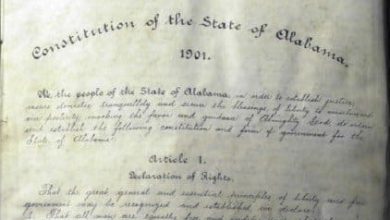 Constitution of the State of Alabama.
1901.
We the people of the State of Alabama, in order to establish justice,
insure domestic tranquillity and secure the blessings of liberty to ourselves and
our posterity, invoking the favor and guidance of Almighty God, do ordain
and establish the following constitution and form of government for the
State of Alabama:
Article 1.
Declaration of Rights.
That the great, general and essential principles of liberty and free
government may be recognized and established, we declare:
1. That all men are equally free and